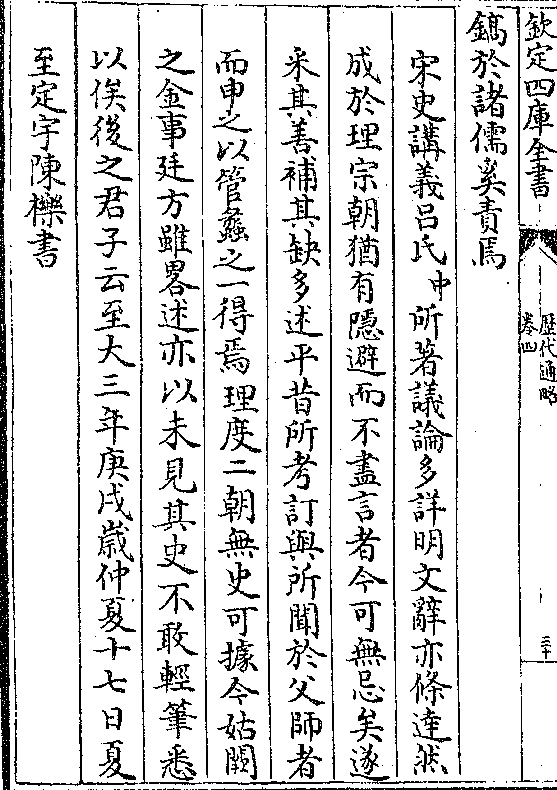 欽定四庫全書
歷代通略
卷四
三十
鎬於諸儒奚責焉
宋史講義呂氏中所著議論多詳明文辭亦條達然
成於理宗朝猶有隱避而不盡言者今可無忌矣遂
采其善補其缺多述平昔所考訂與所聞於父師者
而申之以管蠡之一得焉理度二朝無史可據今姑闕
之金事迋方雖畧述亦以未見其史不敢輕筆悉
以俟後之君子云至大三年庚戌歲仲夏十七日夏
至定宇陳櫟書